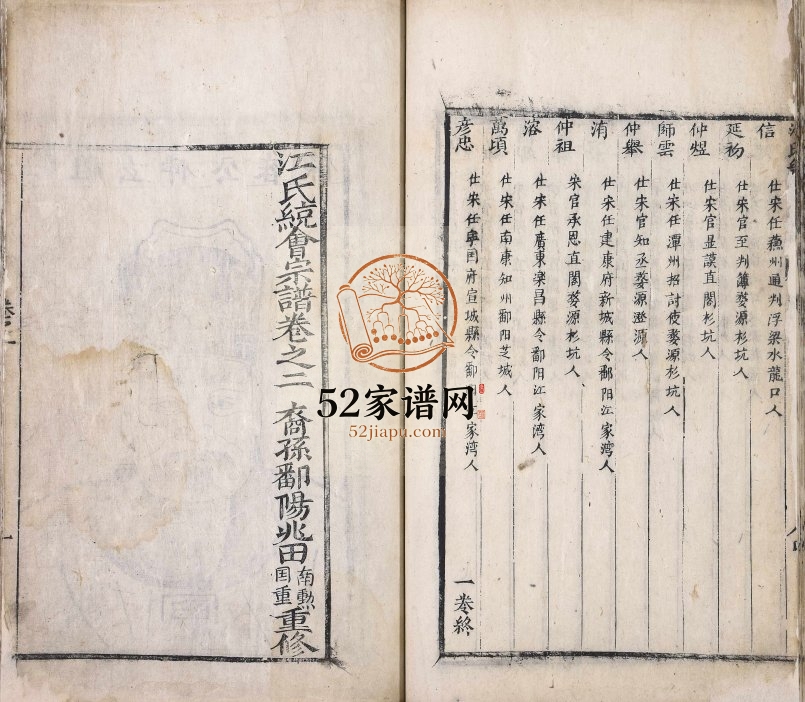 信 仕宋任蘓州通判浮梁水龍口人
延礽 仕宋官至判簿婺源杉坑人
仲煜 仕宋官显謨直閣杉坑人
師雲 仕宋任潭州招討使婺源杉坑人
仲舉 仕宋官知丞婺源澄源人
洧 仕宋任建康府新城縣令鄱阳江家湾人
仲祖 宋官承恩直閣婺源杉坑人
溶 仕宋任廣東楽昌縣令鄱阳江家湾人
萬頃 仕宋任南康知州鄱阳芝城人
彦忠 仕宋任寕囯府宣城縣令鄱 家湾人
一卷終
江氏統會宗譜卷之二 裔孫鄱陽兆田 南勲 囯重 重修
52家谱网
52jiapu.com